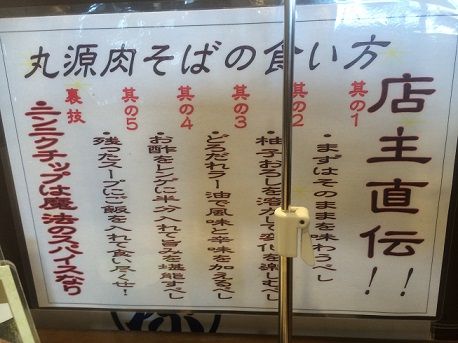 丸源肉そばの食い方
店主直伝!!
其の1
・まずはそのままを味わうべし
其の2
・柚子おろしを溶かして変化を楽しむべし
其の3
・どろだれラー油で風味と辛味を加えるべし
其の4
・お酢をレンゲに半分入れて旨みを堪能すべし
其の5
・残ったスープにご飯を入れて食べ尽くせ!
裏技
ニンニクチップは魔法のスパイスなり